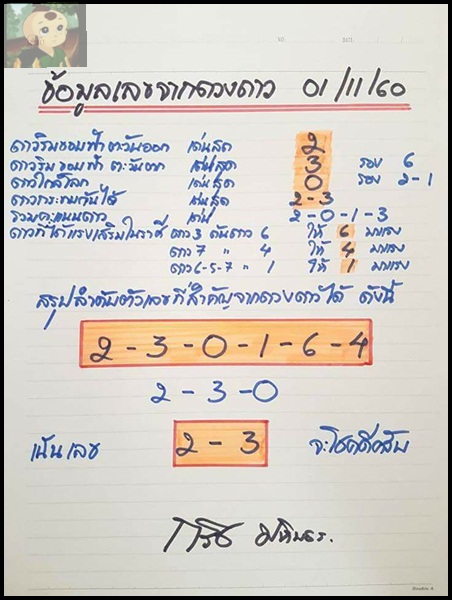 ข้อมูลเลขจากดวงดาว 01/11/60
ดาวริมขอบฟ้า ตะวันออก เด่นสุด 2
ดาวริมขอบฟ้า ตะวันตก เด่นสุด 3 รอง 6
ดาวใกล้โลก เด่นสุด 0 รอง 2-1
ดาวกระทบกันได้ เด่นสุด 2-3
รวมคะแนนดาว เด่น 2-0-1-3
ดาวที่ได้แรงเสริมในราศี ดาว 3 ดันดาว 6 ให้ 6 มาแรง
ดาว 7 " 4 ให้ 4 มาแรง
ดาว 6-5-7 " 1 ให้ 1 มาแรง
สรุปลำดับตัวเลขที่สำคัญจากดวงดาวได้ ดังนี้
2-3-0-1-6-4
2-3-0
เน้นเลข 2-3 จะโชคดีครับ